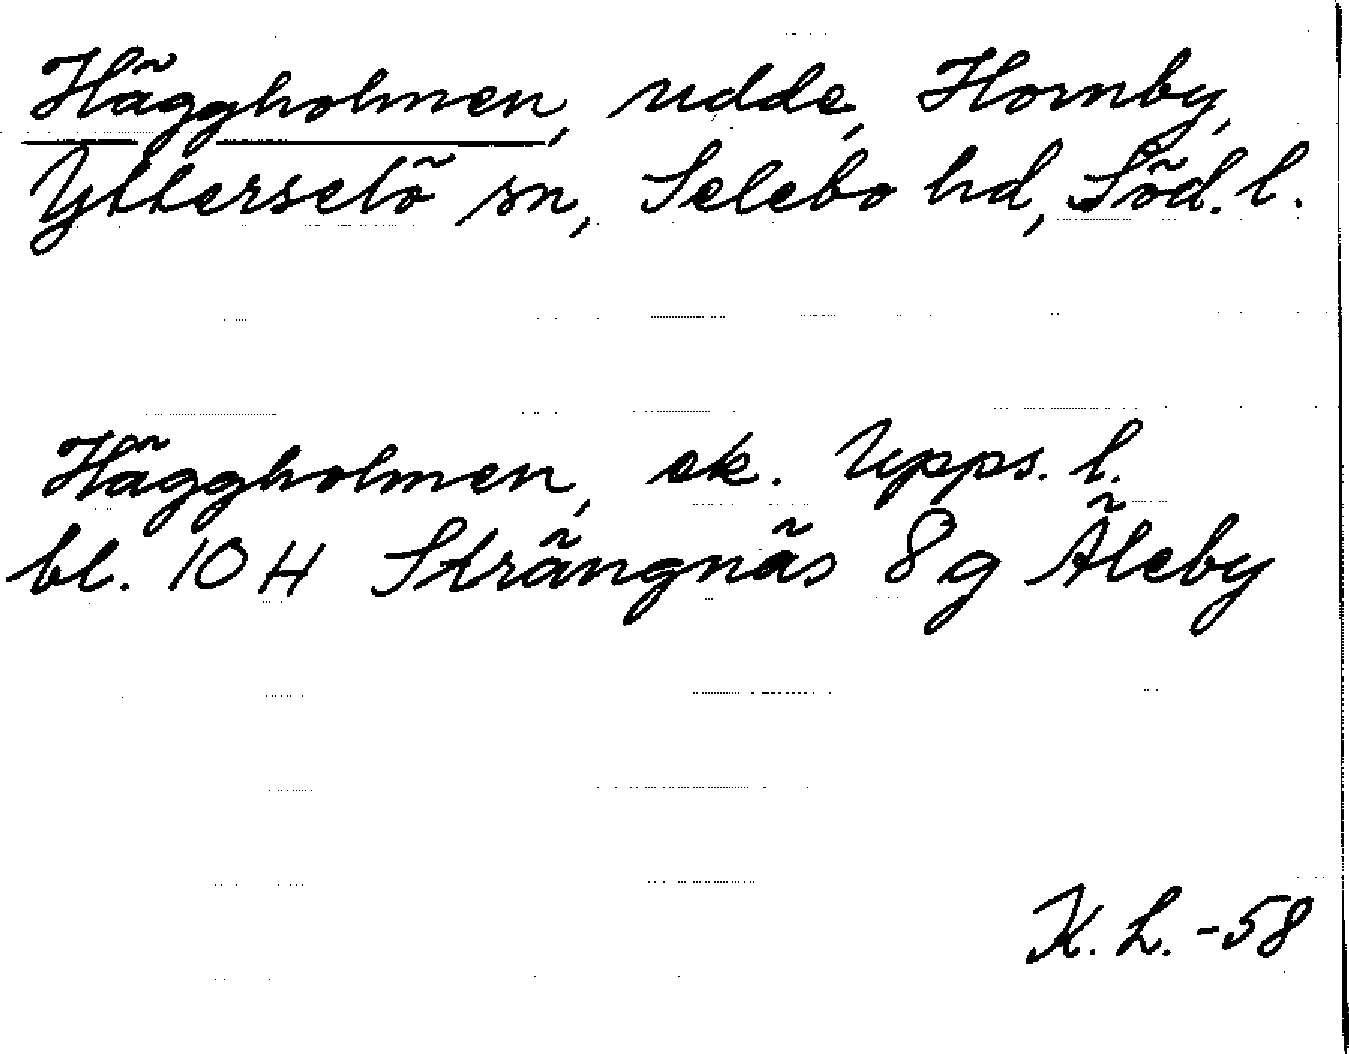 Häggholmen, udde, Hornby,
Ytterselö sn, Selebo hd, Söd. l.
Häggholmen, ek. Upps. l.
bl. 10 H Strängnäs 8 g Äleby
K. L. -58